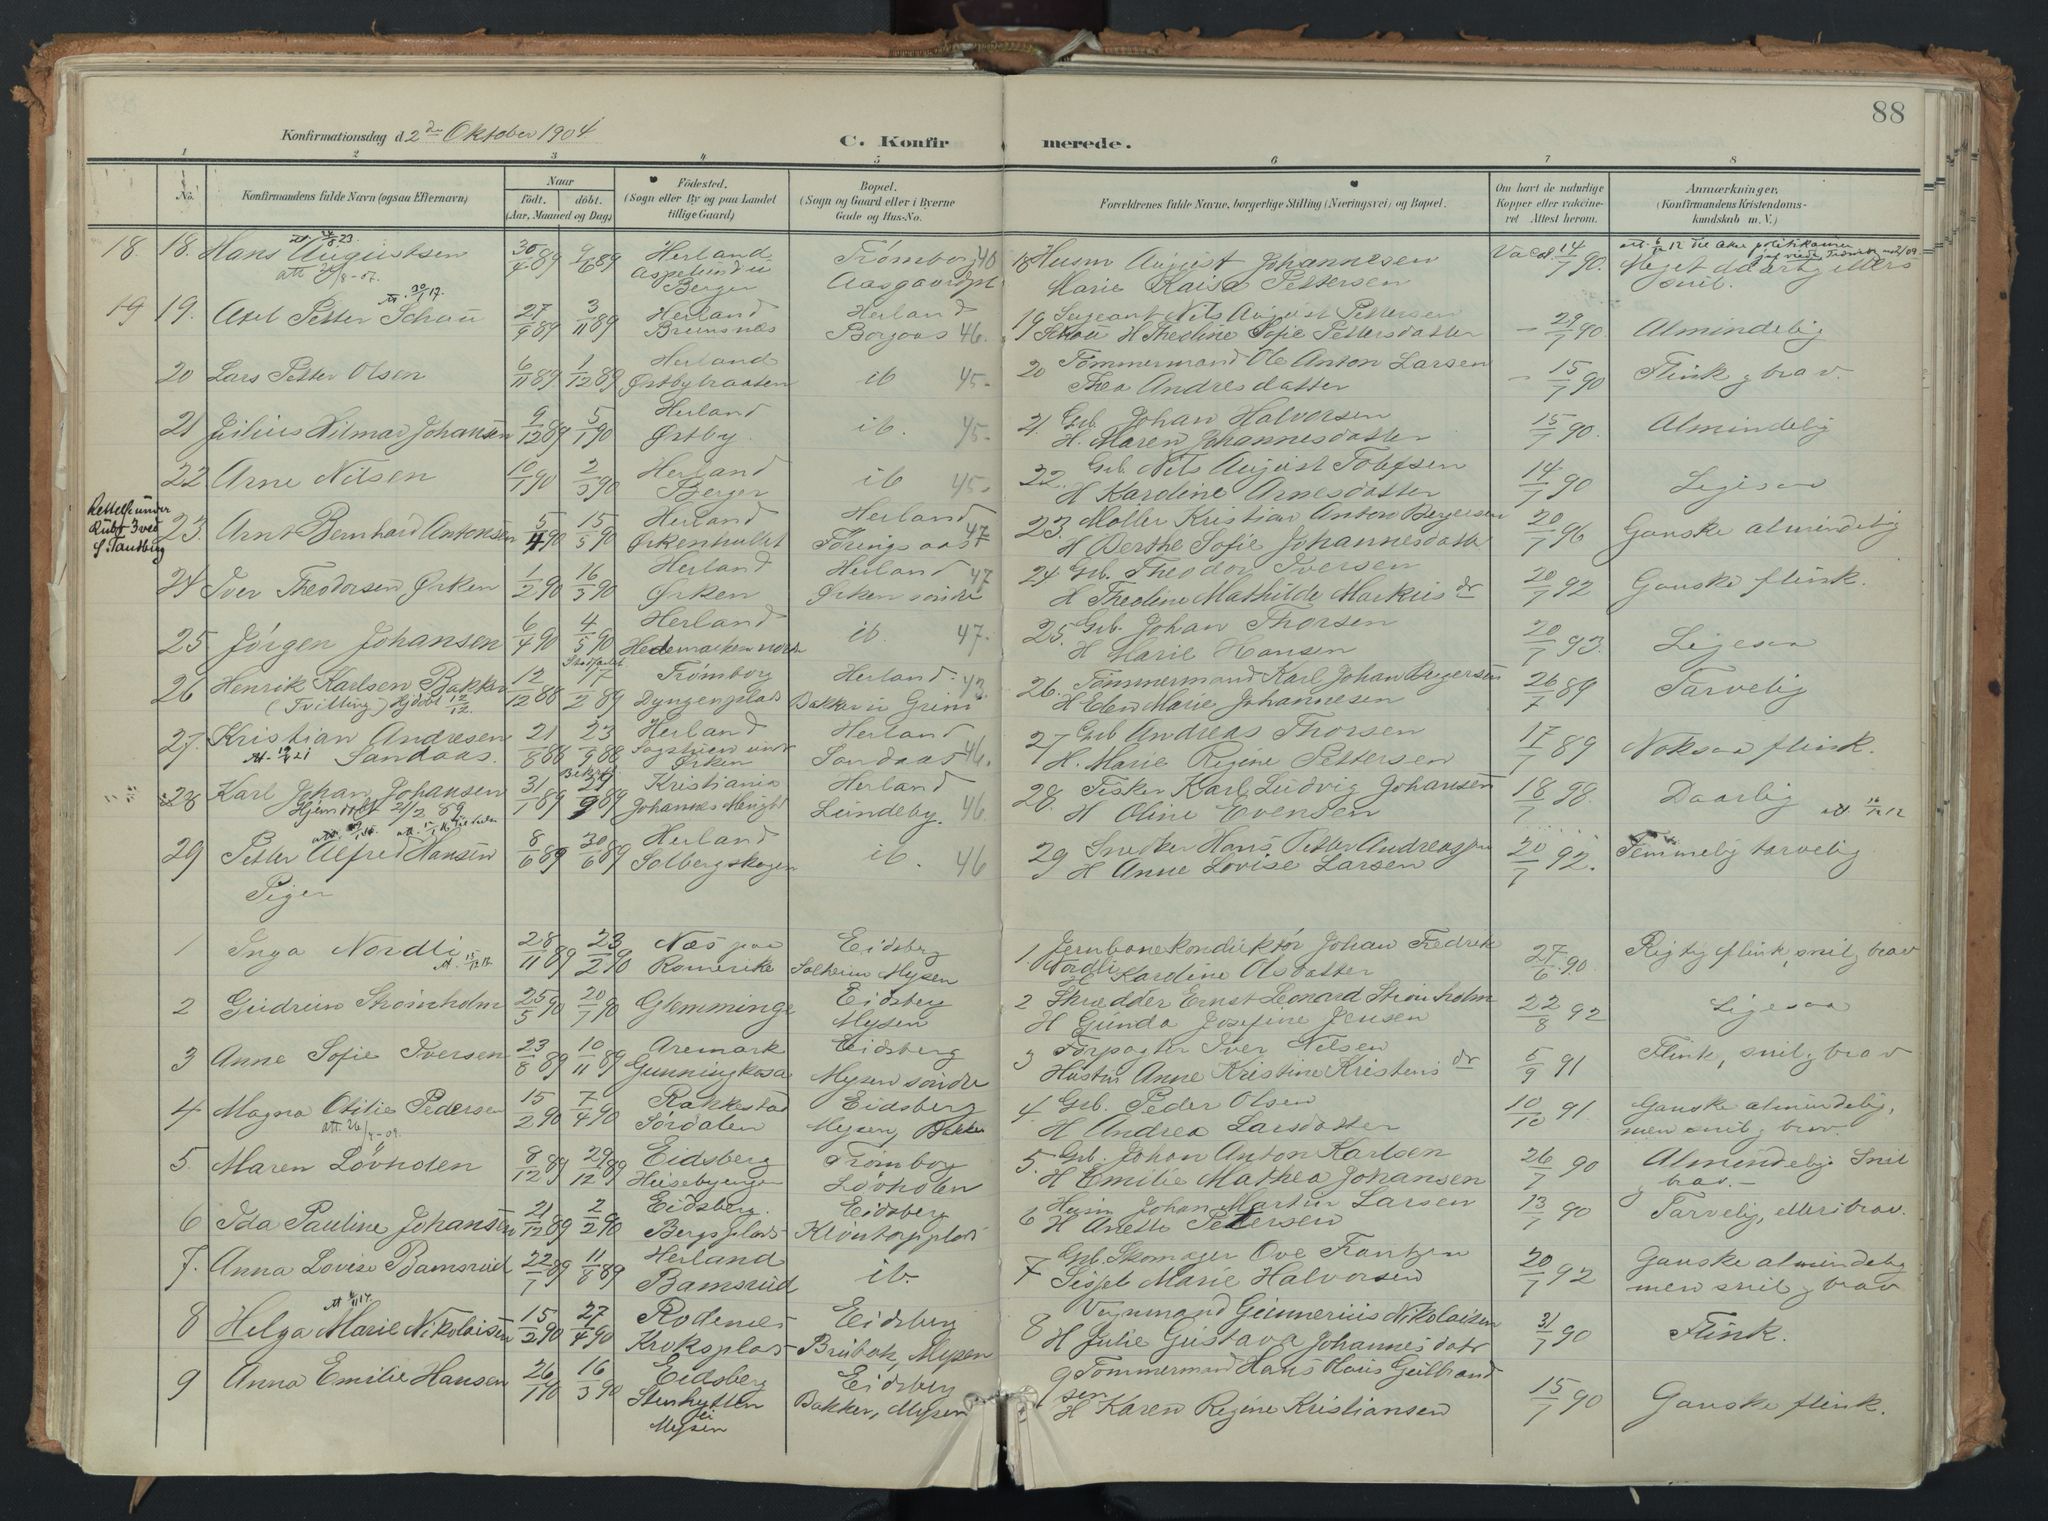 88
Konfirmationsdag d. 2den Oktober 1904
C. Konfir merede.
1 2 3 4 5 6 7 8
No.
Konfirmandens fulde Navn (ogsaa Efternavn)
Naar
Födt. döbt.
(Aar, Maaned og Dag)
Födested.
(Sogn eller By og paa Landet
tillige Gaard)
Bopæl.
(Sogn og Gaard eller i Byerne
Gade og Hus-No.
Forældrenes fulde Navne, borgerlige Stilling (Næringsvei) og Bopæl.
Om havt de naturlige
Kopper eller vaccine-
ret Attest herom.
Anmærkninger.
(Konfirmandens Kristendoms-
kundskab m. V.)
18 18. Hans Augustsen 30/4 89 9/6 89 Herland Trömborg 40 18 Husm August Johannesen Vacc. 14/7 90. Meget daarlig ellers
Aspelund u Berger Aasgaardpl Marie Kaisa Pettersen snil.
19 19. Axel Petter Schau 27/9 89 3/11 89 Herland Herland 19 Sergeant Nils August Pettersen – 29/7 90 Almindelig
Bremsnes Borgaas 46. Schau H Thedline Sofie Pettersdatter
20 Lars Petter Olsen 6/11 89 1/12 89 Herland ib 45. 20 Tømmermand Ole Anton Larsen – 15/7 90 Flink g brav.
Østbybraaten Thea Andresdatter
21 Julius Hilmar Johansen 9/12 89 5/1 90 Herland ib. 45. 21. Grb. Johan Halvorsen 15/7 90. Almindelig
Østby. H. Maren Johannesdatter
22 Arne Nilsen 10/1 90 2/3 90 Herland ib 45. 22. Grb. Nils August Tolefsen 14/7 90 Ligesaa
Berger H Kardine Arnesdatter
Rettelse under
Rubr 3 ved
23. Arnt Bernhard Antonsen 5/4 90 15/5 90 Herland Herland 23. Møller Kristian Anton Bergersen 20/7 96 Ganske almindelig
Ørkenhullet Toringsaas 47 H Berthe Sofie Johannesdatter
24 Iver Theodorsen Ørken 1/2 90 16/3 90 Herland Herland 47 24 Grb. Theodor Iversen 20/7 92 Ganske flink.
Ørken Ørken søndre H Thedline Mathilde Markus dr
25 Jörgen Johansen 6/4 90 4/5 90 Herland ib. 47. 25. Grb. Johan Thorsen 20/7 93. Ligesaa
Hedemarken nordre H Marie Hansen
26 Henrik Karlsen Bakker 12/12 88 17/2 89 Trömborg Herland 43. 26. Tömmermand Karl Johan Bergersen 26/7 89 Tarvelig
(Tvilling) hjdøbt 12/12. Dyngenplads Bakker u Grini H Elen Marie Johannesen
27. Kristian Andresen 21/8 86 23/9 88 Herland Herland 27 Grb Andreas Thorsen 17/7 89 Noksaa flink.
Att. 19/4 21 Sandaas. Sogstuen und. Ørken Sandaas 46. H. Marie Regine Pettersen
28 Karl Johan Johansen 31/1 89 21/9 89 Kristiania Herland 28. Fisker Karl Ludvig Johansen 18/7 98. Daarlig
Hjemdøbt 2/2 89 Johannes Menigh. Lundeby. 46 H Oline Evensen att 16/12 12
29 Petter Alfred Hansen 8/6 89 30/6 89 Herland ib. 46 29 Snedker Hans Petter Andreassen 20/7 92. Temmelig tarvelig
Solbergskogen H Anne Lovise Larsen
Piger
1 Inga Nordli 28/11 89 23/2 90 Næs paa Eidsberg 1 Jernbanekonduktør Johan Fredrik 27/6 90 Rigtig flink, snil g brav
Romerike Solheim Mysen Nordli H Kardine Olsdatter
2 Gudrun Strömholm 25/5 90 20/7 90 Glemminge Eidsberg 2 Skrædder Ernst Leonard Strömholm 22/8 92 Ligesaa
Mysen H Gunda Josefine Jensen
3 Anne Sofie Iversen 23/8 89 10/11 89 Aremark Eidsberg 3 Forpagter Iver Nilsen 5/9 91 Flink, snil g brav
Gunningkasa Mysen søndre Hustru Anne Kristine Kristens dr
4 Magna Otilie Pedersen 15/2 90 7/4 90 Rakkestad Eidsberg 4 Grb. Peder Olsen 10/10 91 Ganske almindelig,
att. 26/4-09. Sørdalen Mysen, Bakke H Andrea Larsdatter men snil g brav
5. Maren Løvholen 8/12 89 29/12 89 Eidsberg Trömborg 5. Grb. Johan Anton Karlsen 26/7 90 Almindelig Snil
Husebyengen Løvholen H Emilie Mathea Johansen g brav.
6 Ida Pauline Johansen 21/12 89 2/2 90 Eidsberg. Eidsberg 6 Husm Johan Martin Larsen 13/7 90 Tarvelig, ellers brav.
Bergsplads Klöstorpplads H Anette Petersen
7. Anna Lovise Bamsrud 22/7 89 11/8 89 Herland ib. 7 Grb. Skomager Ove Frantzen 20/7 92 Ganske almindelig
Bamsrud Sissel Marie Halvorsen men snil g brav
8 Helga Marie Nikolaisen 15/2 90 27/4 90 Rödenes Eidsberg 8 Veinmand Gunnerius Nikolaisen 31/7 90 Flink.
Kroksplads Brubak, Mysen H Julie Gustava Johannesdatr
9 Anna Emilie Hansen 26/1 90 16/3 90 Eidsberg Eidsberg 9 Tømmermand Hans Olaus Gulbrand 15/7 90 Ganske flink.
Stenhytten Bakker, Mysen sen
i Mysen H Karen Regine Kristiansen